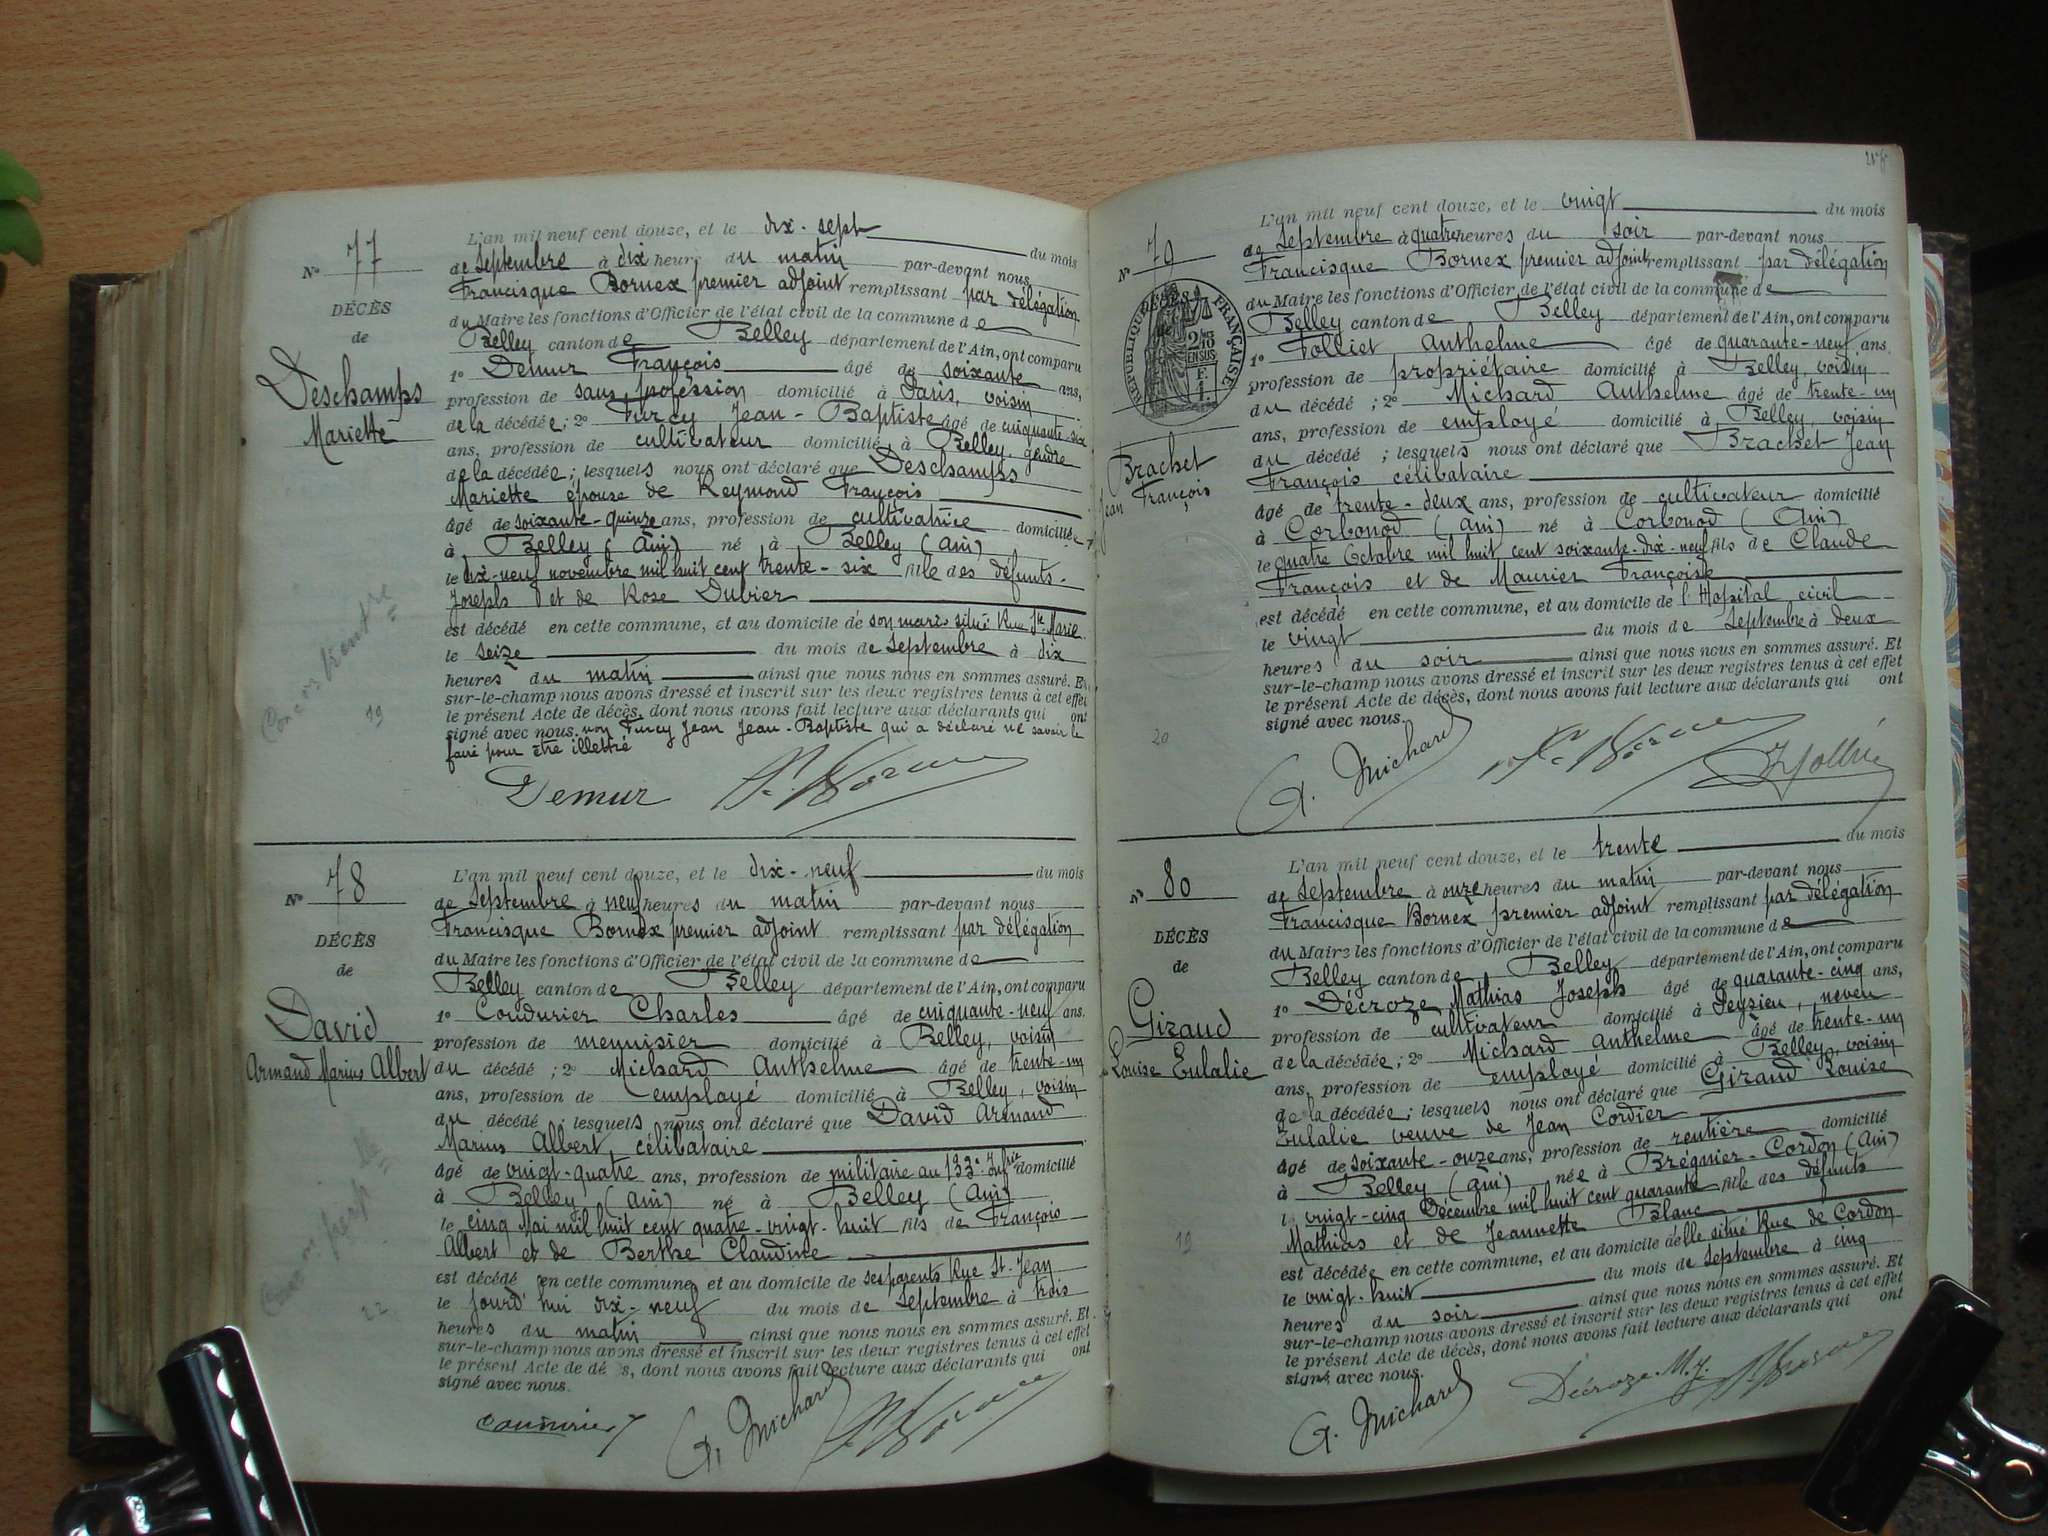 N° 77
DÉCÈS
de
Deschamps
Mariette
L'an mil neuf cent douze, et le dix-sept du mois
de Septembre à dix heures du matin par-devant nous
Francisque Bornex premier adjoint remplissant par délégation
du Maire les fonctions d'Officier de l'état civil de la commune de
Belley canton de Belley département de l'Ain, ont comparu
1° Demur François âgé de soixante ans,
profession de sans profession domicilié à Paris, voisin
de la décédée; 2° Furcy Jean-Baptiste âgé de cinquante-six
ans, profession de cultivateur domicilié à Belley, gendre
de la décédée; lesquels nous ont déclaré que Deschamps
Mariette épouse de Reymond François
âgé de soixante-quinze ans, profession de cultivatrice domiciliée
à Belley (Ain) né à Belley (Ain)
le dix-neuf novembre mil huit cent trente-six fille des défunts
Joseph et de Rose Dubier
est décédé en cette commune, et au domicile de son mari situé Rue Ste Marie
le seize du mois de Septembre à dix
heures du matin ainsi que nous nous en sommes assuré. Et
sur-le-champ nous avons dressé et inscrit sur les deux registres tenus à cet effet
le présent Acte de décès, dont nous avons fait lecture aux déclarants qui ont
signé avec nous. non Furcy Jean Jean-Baptiste qui a déclaré ne savoir le
faire pour être illettré
19
Demur
N° 78
DÉCÈS
de
David
Armand Marius Albert
L'an mil neuf cent douze, et le dix-neuf du mois
de Septembre à neuf heures du matin par-devant nous
Francisque Bornex premier adjoint remplissant par délégation
du Maire les fonctions d'Officier de l'état civil de la commune de
Belley canton de Belley département de l'Ain, ont comparu
1° Coudurier Charles âgé de cinquante-neuf ans.
profession de menuisier domicilié à Belley, voisin
du décédé; 2° Michard Anthelme âgé de trente-un
ans, profession de employé domicilié à Belley, voisin
du décédé; lesquels nous ont déclaré que David Armand
Marius Albert, célibataire
âgé de vingt-quatre ans, profession de militaire au 133e Infrie domicilié
à Belley (Ain) né à Belley (Ain)
le cinq Mai mil huit cent quatre-vingt-huit fils de François
Albert et de Berthe Claudine
est décédé en cette commune, et au domicile de ses parents Rue St-Jean
le jourd'hui dix-neuf du mois de Septembre à trois
heures du matin ainsi que nous nous en sommes assuré. Et
sur-le-champ nous avons dressé et inscrit sur les deux registres tenus à cet effet
le présent Acte de décès, dont nous avons fait lecture aux déclarants qui ont
signé avec nous.
22
Coudurier A. Michard
N° 79
RÉPUBLIQUE FRANÇAISE
2/10 EN SUS
Brachet
Jean François
L'an mil neuf cent douze, et le vingt du mois
de Septembre à quatre heures du soir par-devant nous
Francisque Bornex premier adjoint remplissant par délégation
du Maire les fonctions d'Officier de l'état civil de la commune de
Belley canton de Belley département de l'Ain, ont comparu
1° Folliet Anthelme âgé de quarante-neuf ans
profession de propriétaire domicilié à Belley, voisin
du décédé; 2° Michard Anthelme âgé de trente-un
ans, profession de employé domicilié à Belley, voisin
du décédé; lesquels nous ont déclaré que Brachet Jean
François célibataire
âgé de trente-deux ans, profession de cultivateur domicilié
à Corbonod (Ain) né à Corbonod (Ain)
le quatre Octobre mil huit cent soixante-dix-neuf fils de Claude
François et de Maurier Françoise
est décédé en cette commune, et au domicile de l'Hospital civil
le vingt du mois de Septembre à deux
heures du soir ainsi que nous nous en sommes assuré. Et
sur-le-champ nous avons dressé et inscrit sur les deux registres tenus à cet effet
le présent Acte de décès, dont nous avons fait lecture aux déclarants qui ont
signé avec nous.
20
A. Michard
N° 80
DÉCÈS
de
Giraud
Louise Eulalie
L'an mil neuf cent douze, et le trente du mois
de Septembre à onze heures du matin par-devant nous
Francisque Bornex premier adjoint remplissant par délégation
du Maire les fonctions d'Officier de l'état civil de la commune de
Belley canton de Belley département de l'Ain, ont comparu
1° Décroze Mathias Joseph âgé de quarante-cinq ans,
profession de cultivateur domicilié à Peysieu, neveu
de la décédée; 2° Michard Anthelme âgé de trente-un
ans, profession de employé domicilié à Belley, voisin
de la décédée; lesquels nous ont déclaré que Giraud Louise
Eulalie veuve de Jean Cordier
âgé de soixante-onze ans, profession de rentière domicilié
à Belley (Ain) née à Brégnier-Cordon (Ain)
le vingt-cinq Décembre mil huit cent quarante fille des défunts
Mathias et de Jeannette Blanc
est décédée en cette commune, et au domicile delle situé Rue de Cordon
le vingt-huit du mois de Septembre à cinq
heures du soir ainsi que nous nous en sommes assuré. Et
sur-le-champ nous avons dressé et inscrit sur les deux registres tenus à cet effet
le présent Acte de décès, dont nous avons fait lecture aux déclarants qui ont
signé avec nous.
19
A. Michard Décroze. M. J.